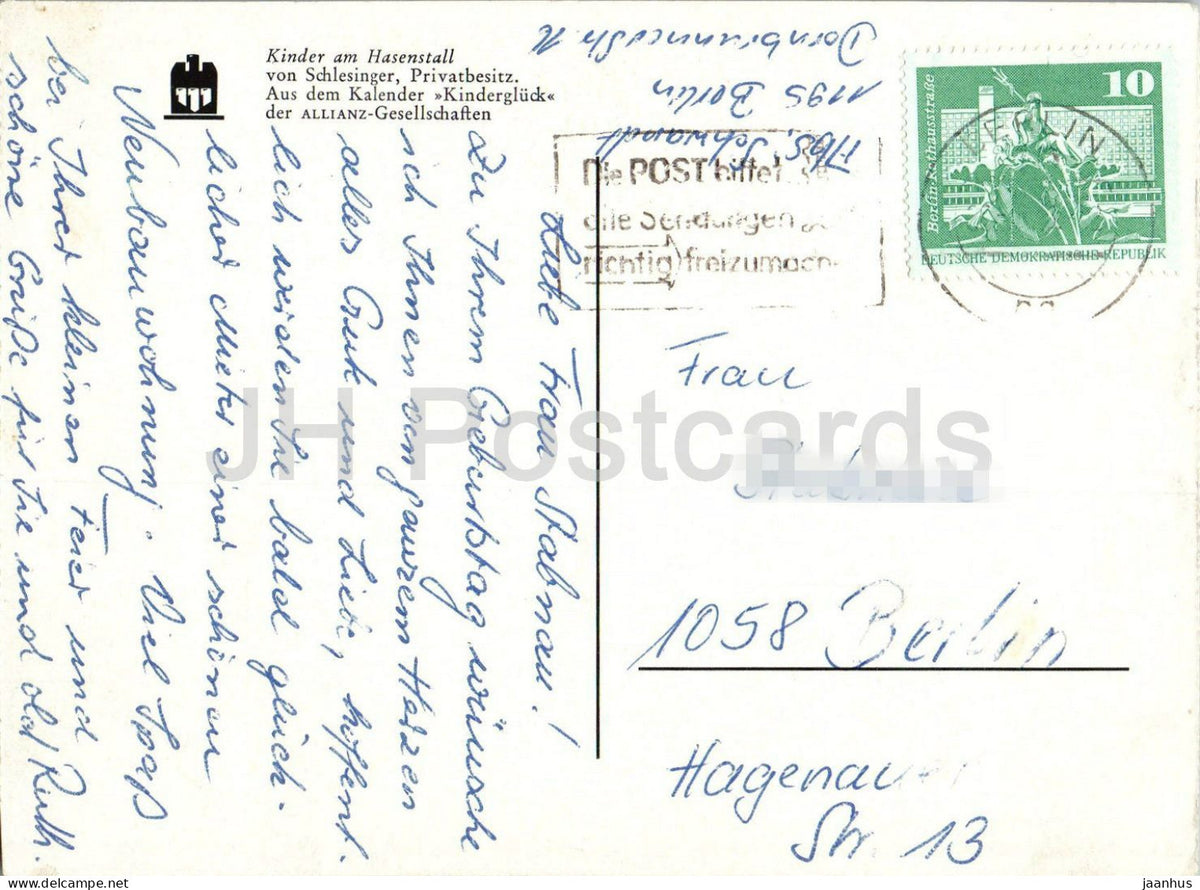 Kinder am Hasenstall
von Schlesinger, Privatbesitz.
Aus dem Kalender »Kinderglück«
der ALLIANZ-Gesellschaften
Liebe Frau Stabnau!
Zu Ihrem Geburtstag wünsche
ich Ihnen von ganzem Herzen
alles Gute und Liebe, hoffent-
lich werden Sie bald glück-
licher Mieter einer schönen
Neubauwohnung. Viel Spaß
bei Ihrer kleinen Feier und
schöne Grüße für Sie und
Ruth.
1195 Berlin
Die POST bittet
alle Sendungen
richtig freizumach
10
Berlin-Rathausstraße
DEUTSCHE DEMOKRATISCHE REPUBLIK
BERLIN
Frau
1058 Berlin
Hagenauer
Str. 13
JH Postcards
jaanhus